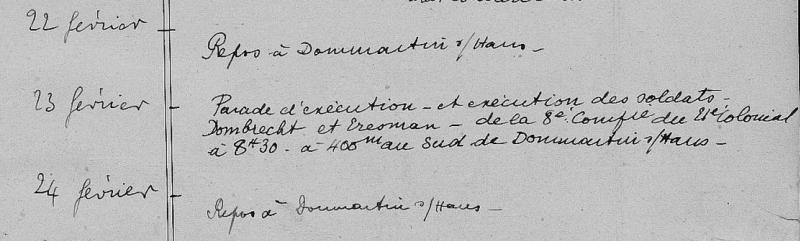 22 février –
Repos à Dommartin s/Hans –
23 février – Parade d'exécution – et exécution des soldats –
Dombrecht et Eresman – de la 8e Compie du 21e Colonial
à 8H30 – à 400m au Sud de Dommartin s/Hans –
24 février –
Repos à Dommartin s/Hans –